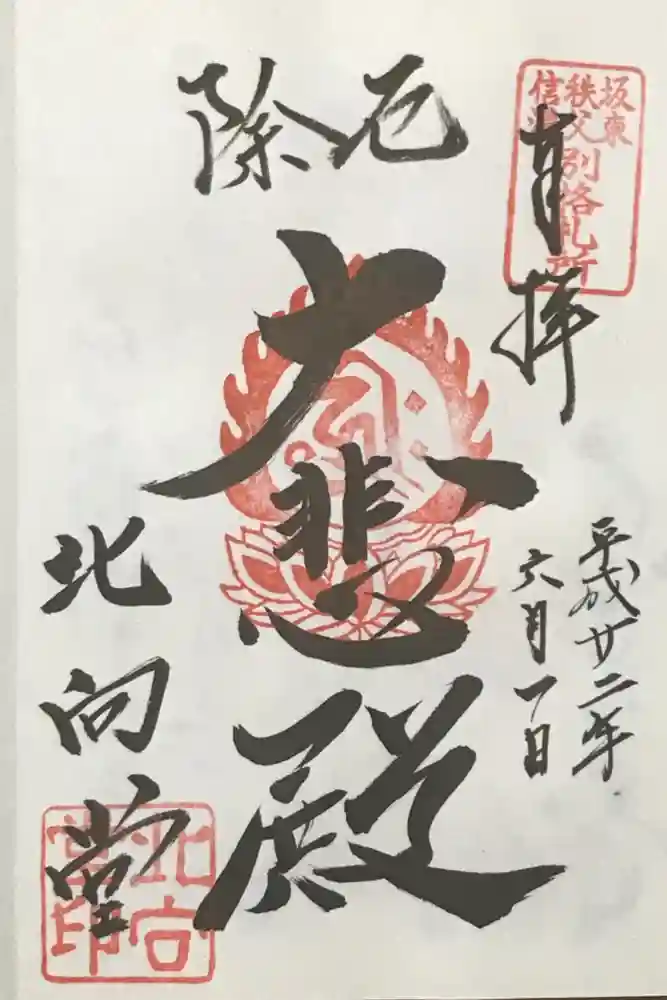 坂東
秩父
信
別格札所
奉拝
平成廿二年
六月一日
厄除
大悲殿
北向堂
北向
堂印